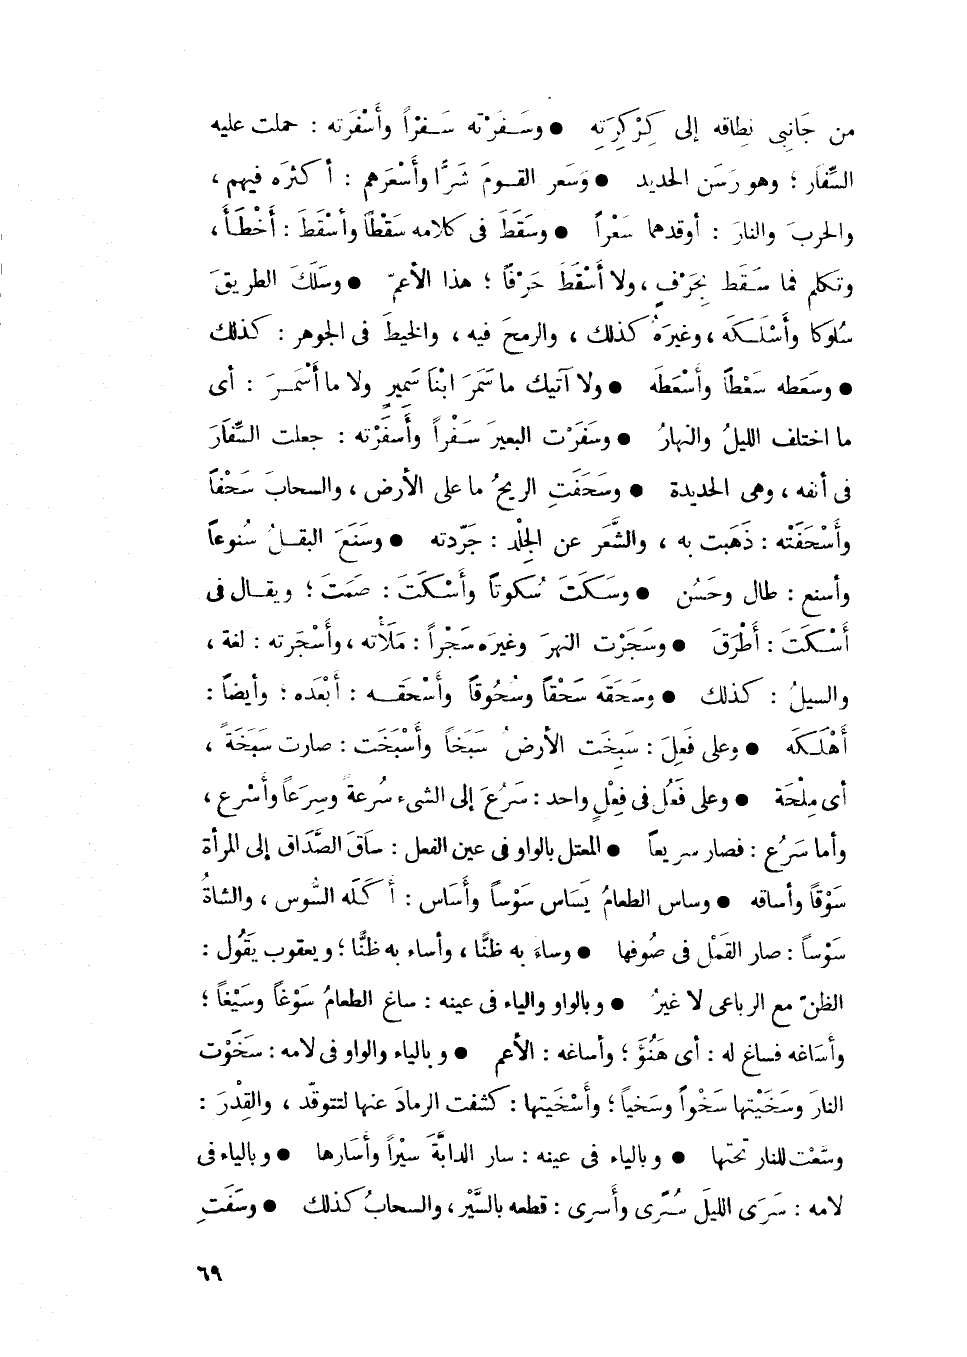 من جَانِبى نِطاقه إلى كِرْكِرَتِهِ ● وسَفَرْته سَفْراً وأَسْفَرَته : حملت عليه
السِّفَار ؛ وهو رَسَن الحديد ● وَسَعر القومَ شَرًّا وأَسْعَرهم : أكثرَه فيهم ،
والحربَ والنارَ : أوقدهما سَعْراً ● وسَقَطَ فى كلامه سَقْطًا وأَسْقَطَ : أَخْطَأَ ،
وتكلم فما سَقَط بِحَرْفٍ ، ولا أَسْقَطَ حَرْفًا ؛ هذا الأعمّ ● وسَلَكَ الطريقَ
سُلوكا وأَسْلَكَه ، وغيرَهُ كذلك ، والرمحَ فيه ، والخيطَ فى الجوهر : كذلك
● وسَعَطه سَعْطًا وأَسْعَطَه ● ولا آتيك ما سَمَرَ ابْنَا سَمِيرٍ ولا ما أَسْمَرَ : أى
ما اختلف الليلُ والنهارُ ● وسَفَرْت البعيرَ سَفْراً وأَسفَرْته : جعلت السِّفَارَ
فى أنفه ، وهى الحديدة ● وسَحَفَتِ الريحُ ما على الأرض ، والسحابَ سَحْفًا
وأَسْحَفَتْه : ذَهَبت به ، والشَّعَر عن الجِلْد : جَرّدته ● وسَنَعَ البقلُ سُنوعاً
وأسنع : طال وحَسُن ● وسَكَتَ سُكوتاً وأَسْكَتَ : صَمَتَ ؛ ويقال فى
أَسْكَتَ : أَطْرَقَ ● وسَجَرْت النهرَ وغيرَه سَجْراً : مَلَأْته ، وأَسْجَرته : لغة ،
والسيلُ : كذلك ● وسَحَقَه سَحْقاً وسُحُوقاً وأَسْحَقه : أَبْعَده ؛ وأيضاً :
أَهْلَكَه ● وعلى فَعِلَ : سَبِخَت الأرضُ سَبَخاً وأَسْبَخَت : صارت سَبَخَةً ،
أى مِلْحَة ● وعلى فَعُل فى فِعْلٍ واحد : سَرُعَ إلى الشىء سُرعة وسِرَعاً وأَسْرع ،
وأما سَرُع : فصار سريعاً ● المعتل بالواو فى عين الفعل : سَاقَ الصَّدَاق إلى المرأة
سَوْقاً وأساقه ● وساس الطعامُ يَسَاس سَوْساً وأَسَاس : أَكَله السُّوس ، والشاةُ
سَوْساً : صار القَمْل فى صُوفها ● وساءَ به ظنًّا ، وأساء به ظنًّا ؛ ويعقوب يَقُول :
الظنّ مع الرباعى لا غيرُ ● وبالواو والياء فى عينه : ساغ الطعامُ سَوْغاً وسَيْغاً ؛
وأَسَاغه فساغ له : أى هَنُؤَ ؛ وأساغه : الأعم ● وبالياء والواو فى لامه : سَخَوْت
النارَ وسَخَيْتها سَخْواً وسَخياً ؛ وأَسْخَيتها : كشفت الرمادَ عنها لتتوقّد ، والقِدْرَ :
وسَّعْت للنار تحتها ● وبالياء فى عينه : سار الدابَّةَ سَيْراً وأَسَارها ● وبالياء فى
لامه : سَرَى الليلَ سُرًى وأَسرى : قطعه بالسَّيْر ، والسحابُ كذلك ● وسَفَتِ
٦٩